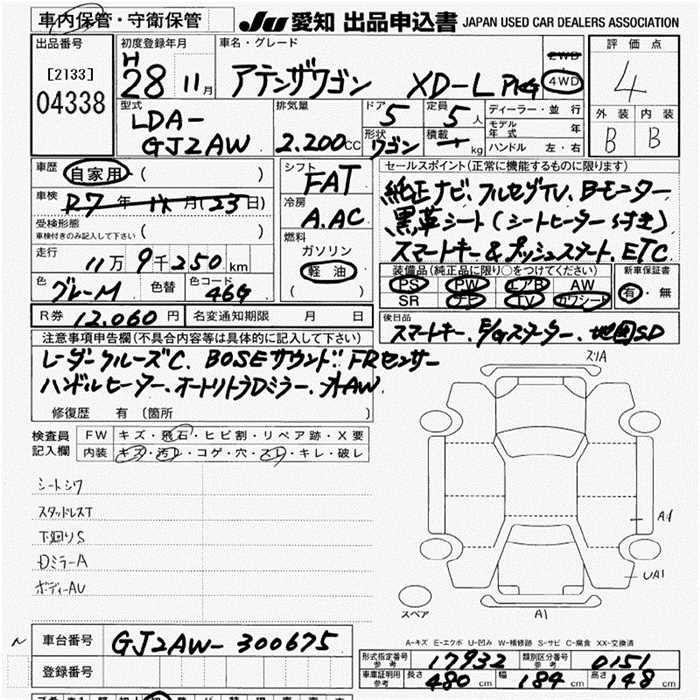 車内保管・守衛保管 JU 愛知 出品申込書 JAPAN USED CAR DEALERS ASSOCIATION
出品番号 初度登録年月 車名・グレード 評価点
[2133] H 2WD
04338 28 11月 アテンザワゴン XD-L PKG 4WD 4
型式 排気量 ドア 定員 ディーラー・並行 外装 内装
LDA- 5 5人 モデル年式 年 B B
GJ2AW 2.200cc 形状 ワゴン 積載 kg ハンドル 左・右
車歴 自家用 ( ) シフト FAT セールスポイント(正常に機能するものに限ります)
車検 R7年 月(23日) 冷房 純正ナビ.フルセグTV.Bモニター
受検形態 A.AC 黒革シート(シートヒーター付き)
車検付きのみ記入して下さい ( ) 燃料 スマートキー&プッシュスタート.ETC
走行 11万9千250km ガソリン 装備品(純正品に限り○をつけてください) 新車保証書
色 グレーM 色替 色コード 46G 軽油 PS PW エアB AW 有・無
( ) SR ナビ TV カワシート
R券 12.060円 名変通知期限 月 日 後日品
スマートキー.E/Gスターター.地図SD
注意事項申告欄(不具合内容等は具体的に記入して下さい)
レーダークルーズC. BOSEサウンド. FRセンサー
ハンドルヒーター.オートリトラDミラー.オAW.
修復歴 有 (箇所 )
検査員 FW キズ・飛石・ヒビ割・リペア跡・X要
記入欄 内装 キズ・汚レ・コゲ・穴・スレ・キレ・破レ
スリA
シートシワ
スタッドレスT
下廻りS
DミラーA
ボディーAU
A1
UA1
スペア
A1
A-キズ E-エクボ U-凹み W-補修跡 S-サビ C-腐食 XX-交換済
車台番号 GJ2AW-300675
形式指定番号 参考 17932 類別区分番号 参考 0151
登録番号
車庫証明用 参考 長さ 480cm 幅 184cm 高さ 148cm